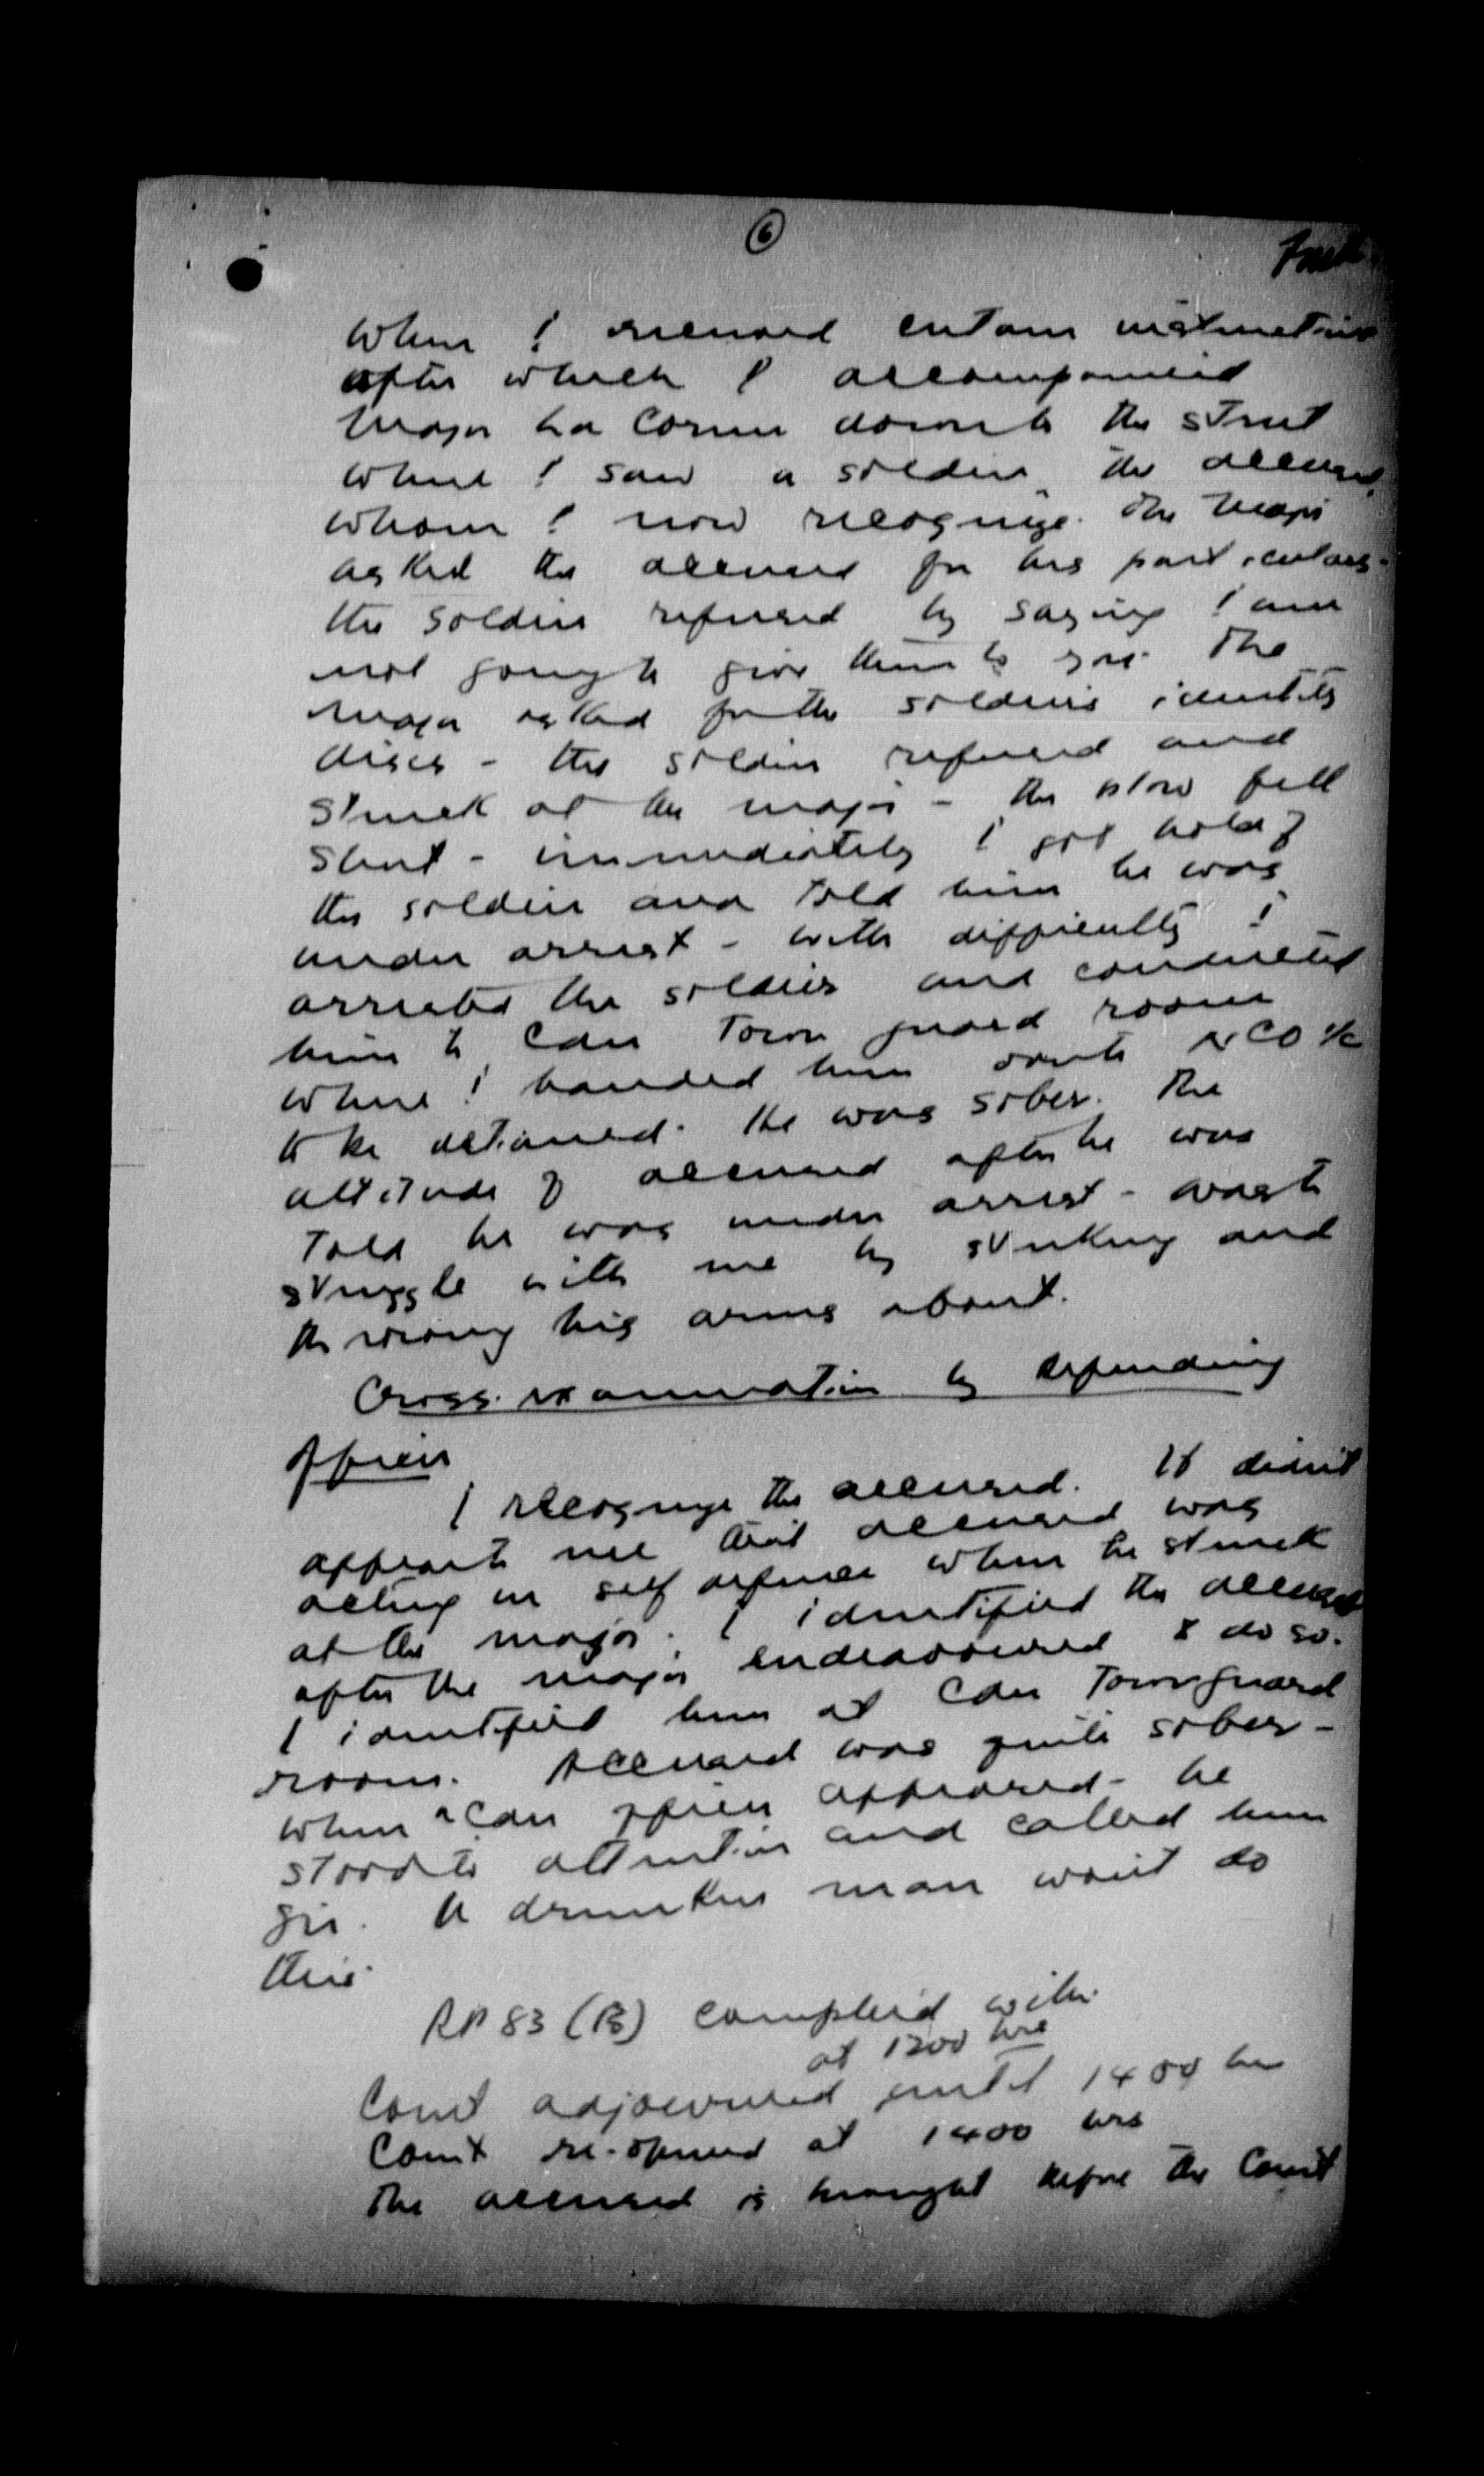 6
When I received certain instructions
after which I accompanied
Major La Corne down to the street
where I saw a soldier, the accused,
whom I now recognize. The Major
asked the accused for his particulars -
the soldier refused by saying I am
not going to give them to you. The
major asked for the soldiers identity
discs - the soldier refused and
struck at the major - the blow fell
short - immediately I got hold of
the soldier and told him he was
under arrest - with difficulty I
arrested the soldier and conducted
him to Cdn Town guard room
where I handed him over to NCO i/c
to be detained. He was sober. The
attitude of accused after he was
told he was under arrest - was to
struggle with me by striking and
throwing his arms about.
Cross-examination by defending
officer
I recognize the accused. It didn't
appear to me that accused was
acting in self defence when he struck
at the major. I identified the accused
after the major endeavoured to do so.
I identified him at Cdn Town guard
room. Accused was quite sober -
when a Cdn officer appeared - he
stood to attention and called him
sir. A drunken man won't do
this.
RP 83 (B) complied with
at 1200 hrs
Court adjourned until 1400 hrs
Court re-opened at 1400 hrs
The accused is brought before the Court